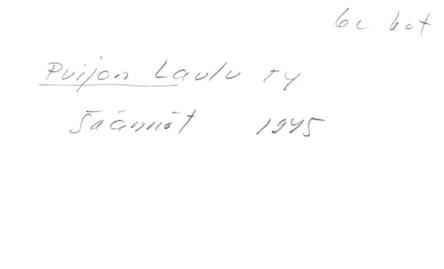 6c kot
Puijon Laulu ry.
Säännöt 1945